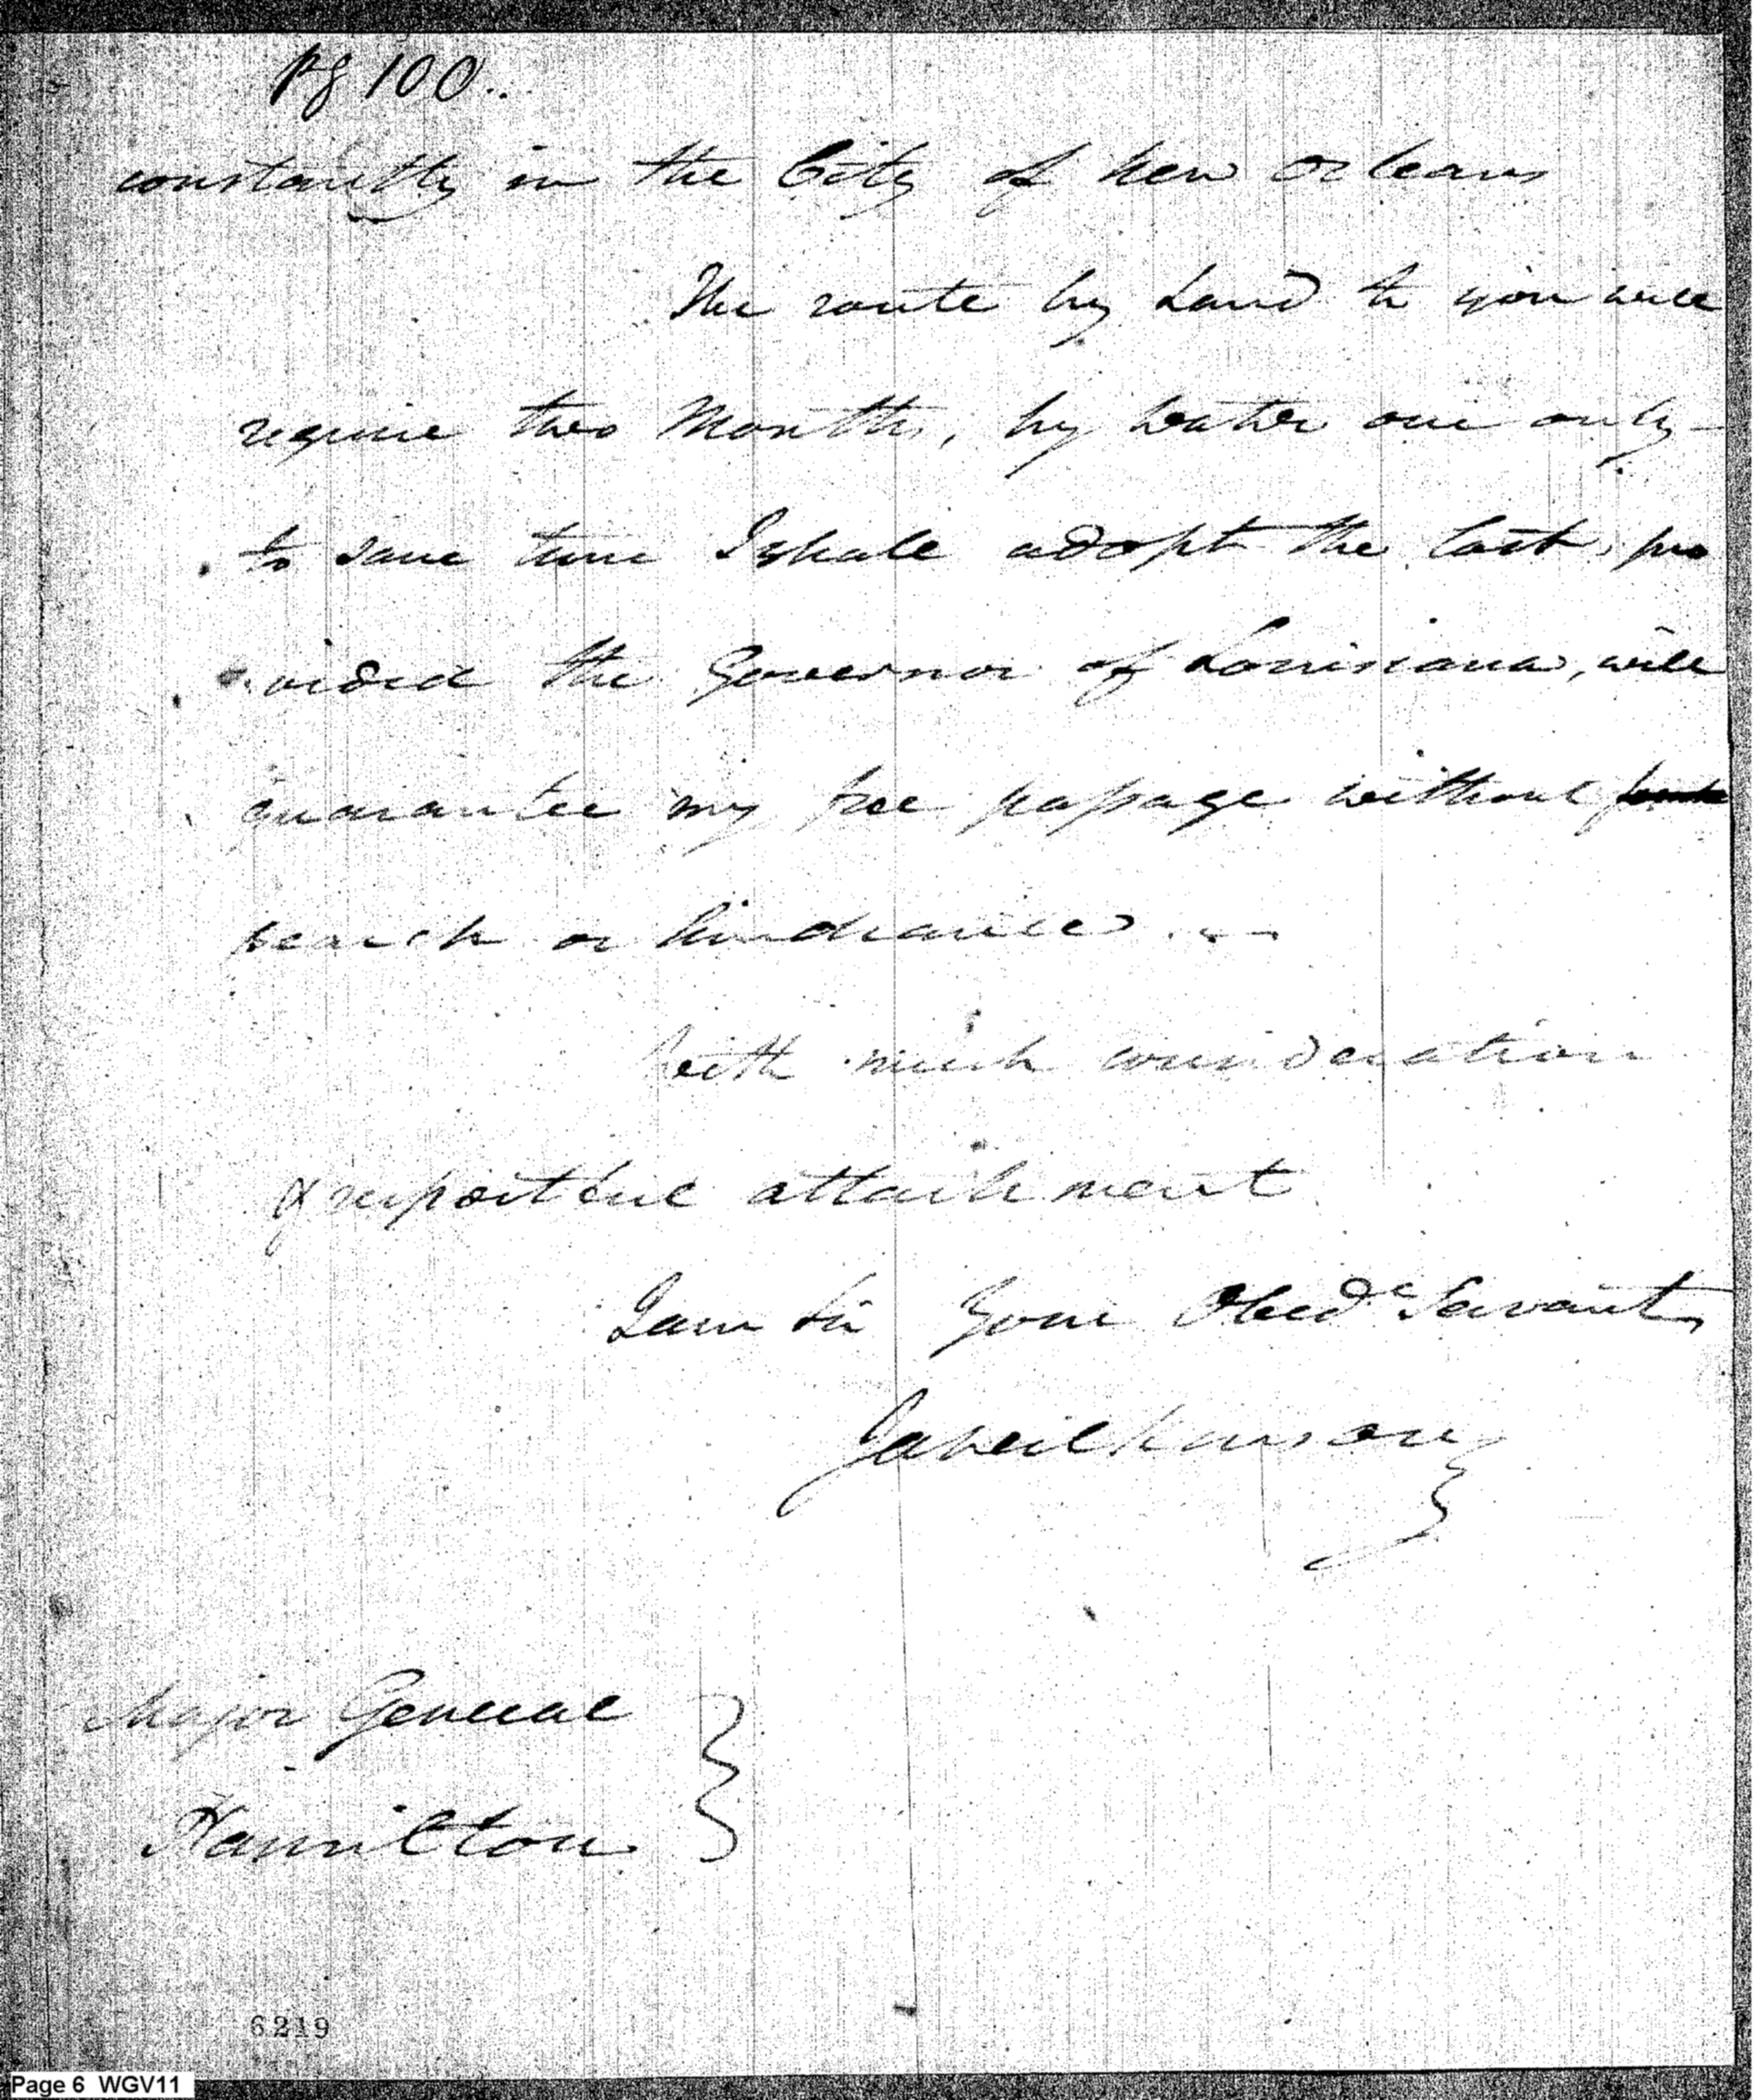 pg 100..
constantly in the City of New Orleans
The route by Land to you will
require two Months, by water one only–
to save time I shall adopt the last, pro
vided the Governor of Louisiana, will
guarantee my free passage without
search or hindrance. . –
With much consideration
& respectful attachment
I am Sir Your Obedt Servant,
Ja Wilkinson
Major General
Hamilton
6219
Page 6 WGV11